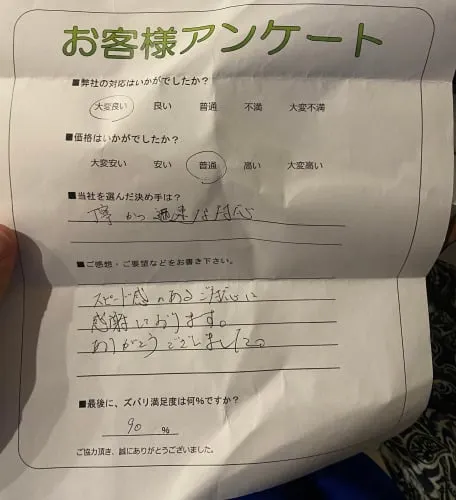 お客様アンケート
■弊社の対応はいかがでしたか?
大変良い 良い 普通 不満 大変不満
■価格はいかがでしたか?
大変安い 安い 普通 高い 大変高い
■当社を選んだ決め手は?
■ご感想・ご要望などをお書き下さい。
スピード感のあるご対応に
感謝しております。
ありがとうございました。
■最後に、ズバリ満足度は何%ですか?
90 %
ご協力頂き、誠にありがとうございました。